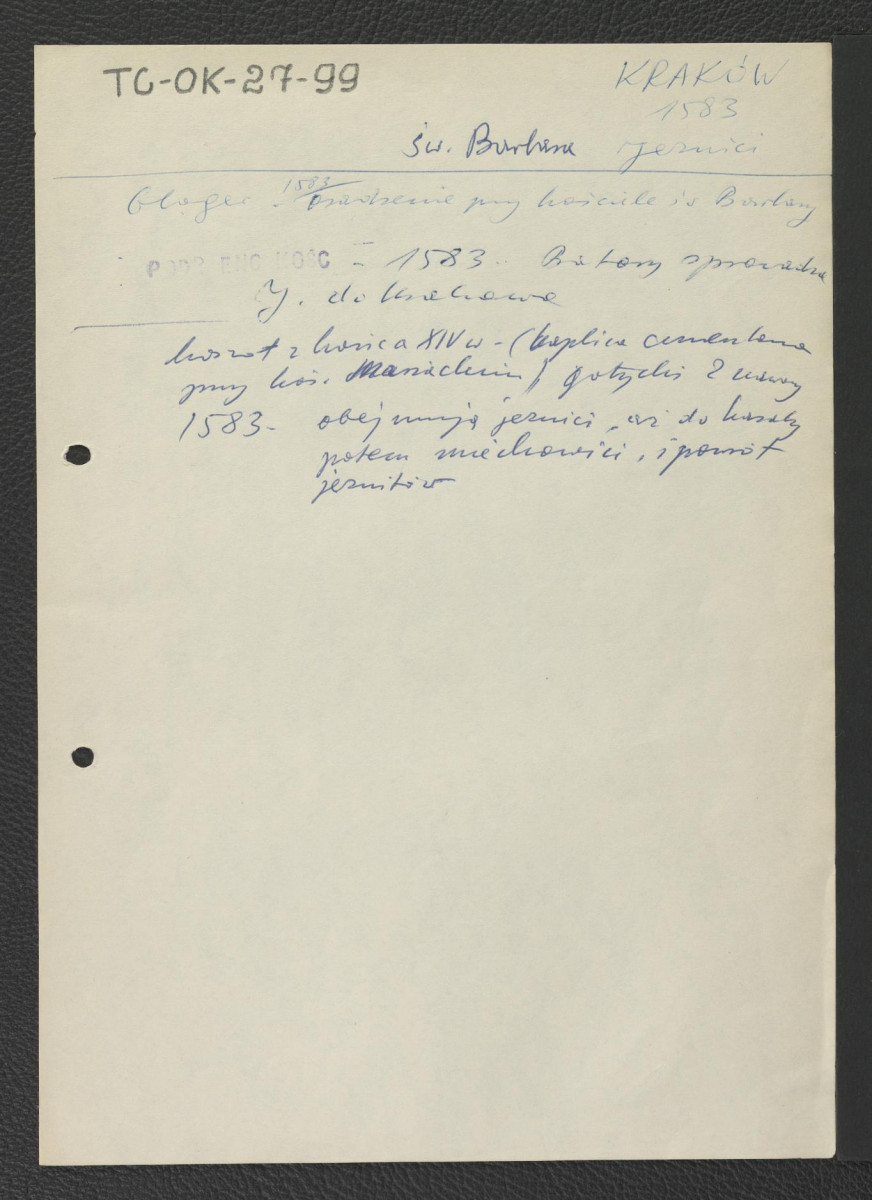 TC-OK-27-99
KRAKÓW
1583
św. Barbara jezuici
Gloger - 1583 osadzenie przy kościele św Barbary
PODR ENC KOŚC - 1583. Batory sprowadza
J. do Krakowa
kościół z końca XIV w - (kaplica cmentarna
przy koś. Mariackim) gotycki 2 nawy
1583 - obejmują jezuici, aż do kasaty
potem miechowici, i powrót
jezuitów